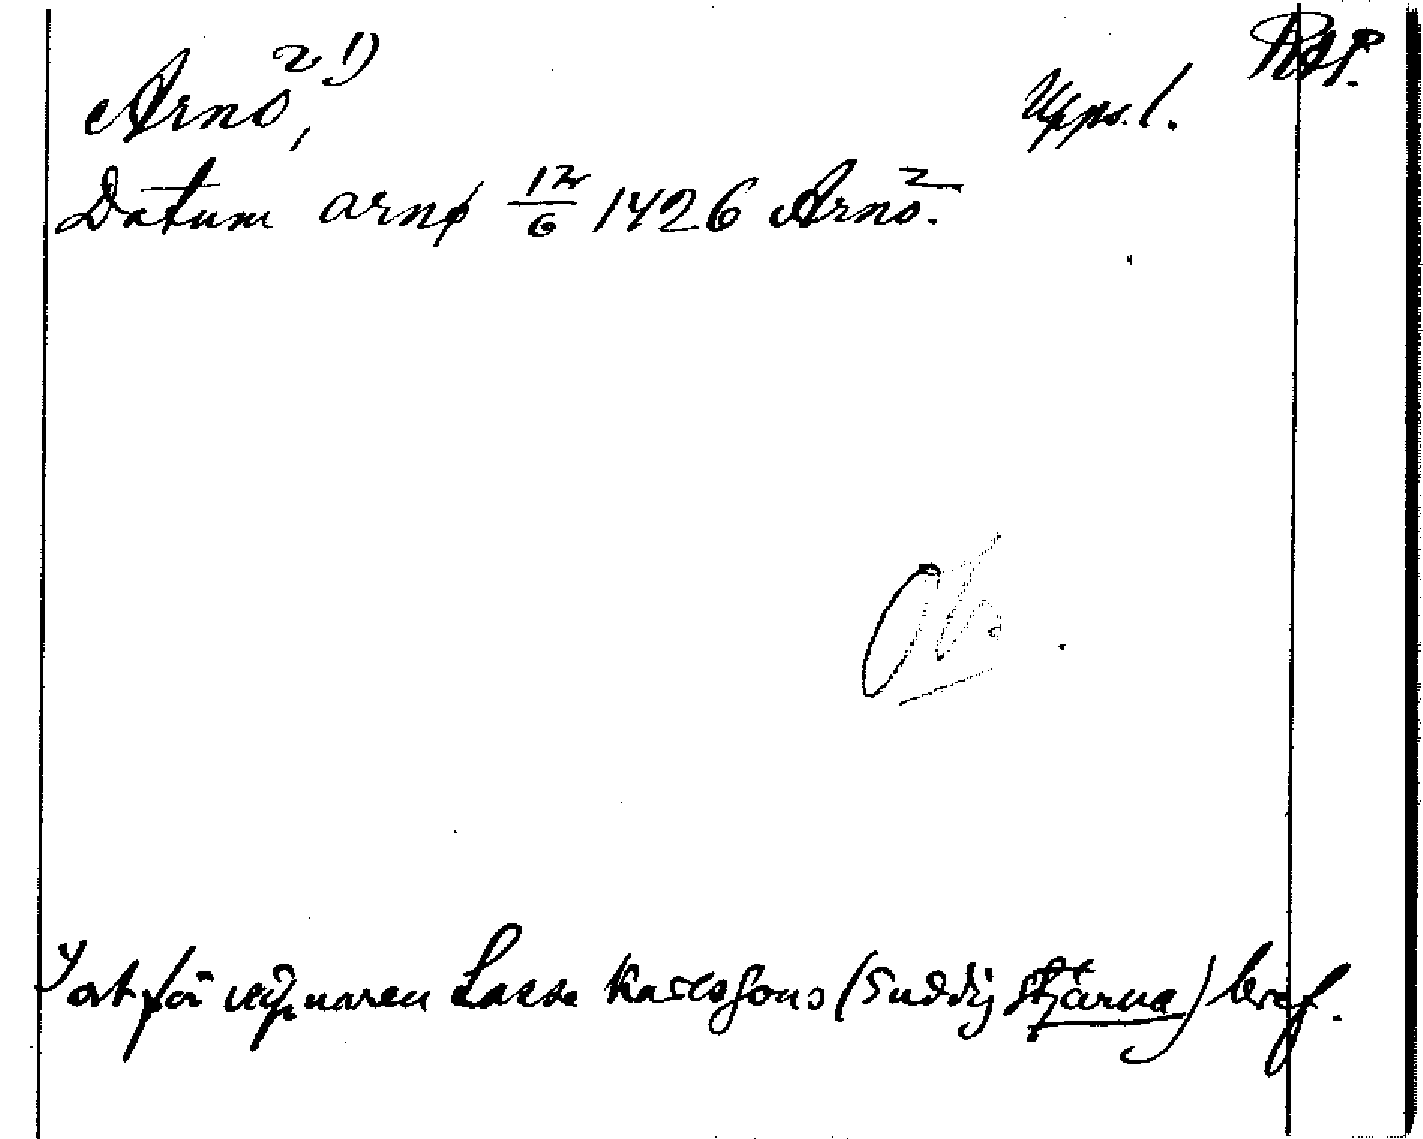 Arnö, 2 1) Upps. l. RAP.
Datum arnø 12/6 1426 Arnö. 2
Obs
1) ort för väpnaren Lasse Karlssons (suddig stjärna) bref.